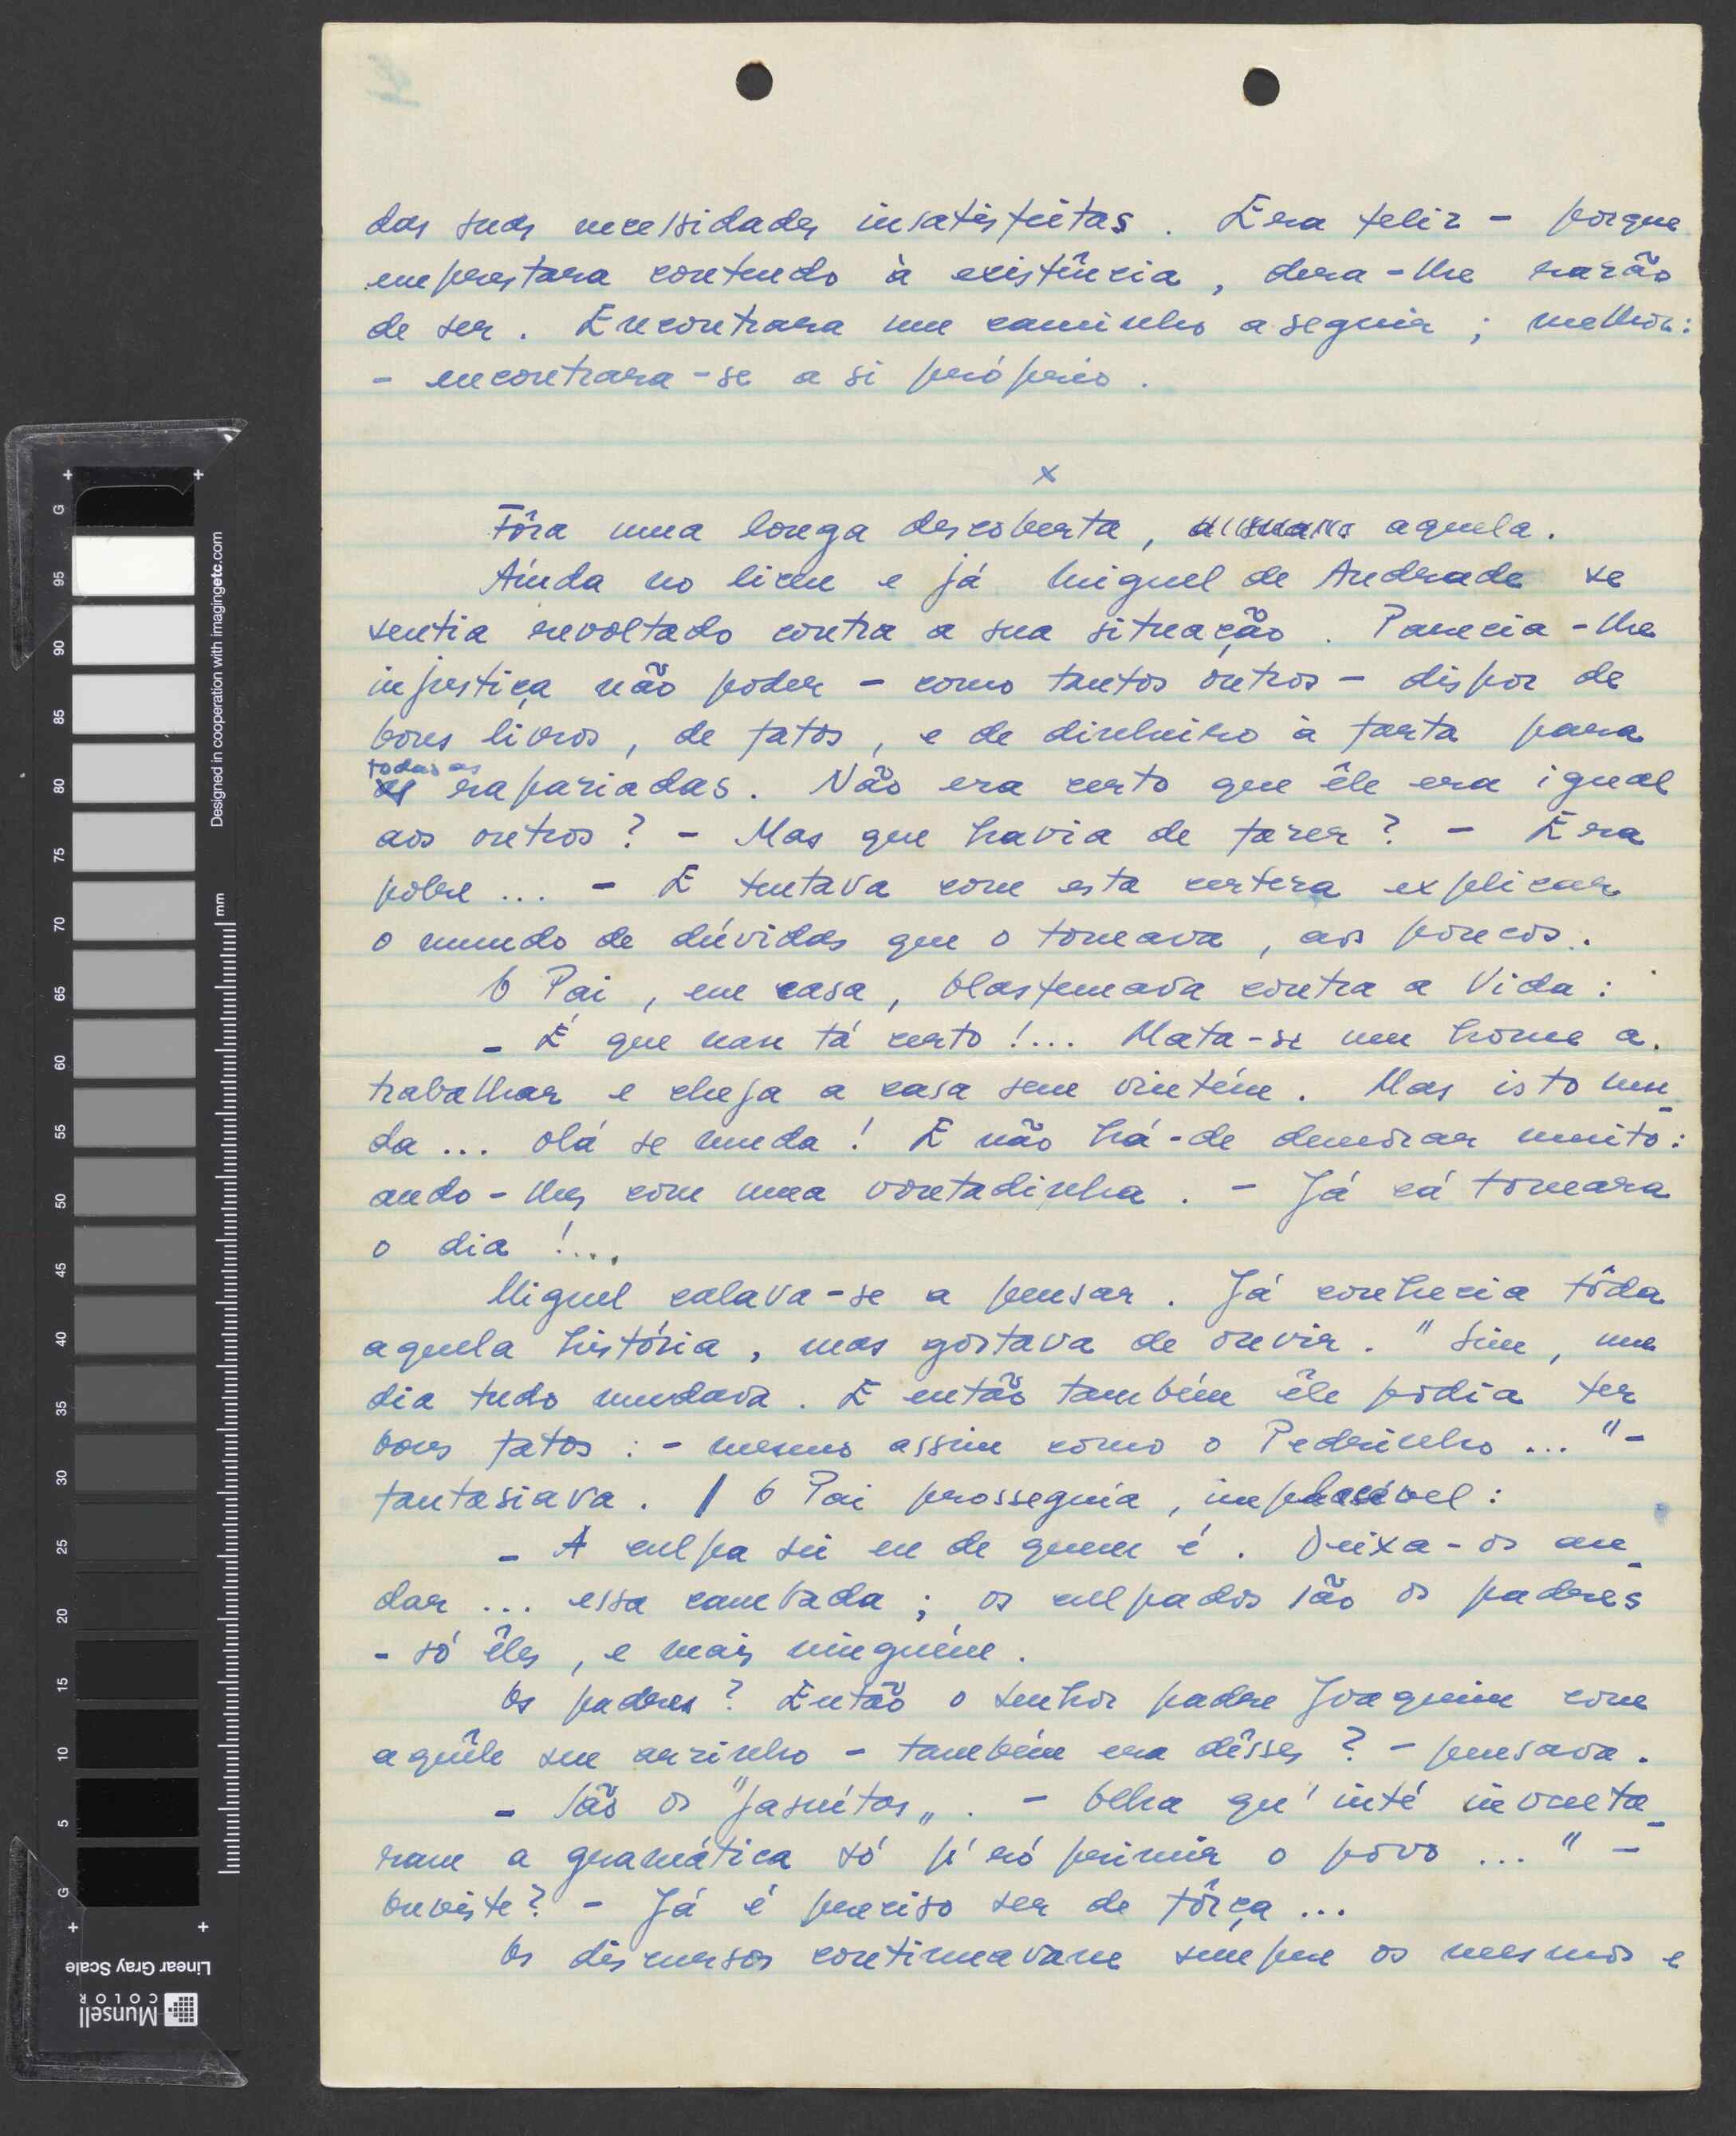 das suas necessidades insatisfeitas. Era feliz - porque
emprestara contendo à existência, dera-lhe razão
de ser. Encontrara um caminho a seguir; melhor:
- encontrara-se a si próprio.
x
Fôra uma longa descoberta, aquela.
Aínda no liceu e já Miguel de Andrade se
sentia revoltado contra a sua situação. Parecia-lhe
injustiça não poder - como tantos outros - dispor de
bons livros, de fatos, e de dinheiro à farta para
todas as
as rapariadas. Não era certo que êle era igual
aos outros? - Mas que havia de fazer? - Era
pobre... - E tentava com esta certeza explicar
o mundo de dúvidas que o tomava, aos poucos.
O Pai, em casa, blasfemava contra a Vida:
- É que nan tá certo!... Mata-se um home a
trabalhar e chega a casa sem vintém. Mas isto mu-
da... olá se muda! E não há-de demorar muito:
ando-lhes com uma vontadinha. - Já cá tomara
o dia!...
Miguel calava-se a pensar. Já conhecia tôda
aquela história, mas gostava de ouvir. "Sim, um
dia tudo mudava. E então também êle podia ter
bons fatos: - mesmo assim como o Pedrinho..." -
fantasiava. / O Pai prosseguia, implacável:
- A culpa sei eu de quem é. Deixa-os an-
dar... essa cambada; os culpados são os padres
- só êles, e mais ninguém.
Os padres? Então o senhor padre Joaquim com
aquêle seu arzinho - também era dêsses? - pensava.
- São os "jasuítas". - Olha qu'inté inventa-
ram a gramática só p'ró primir o povo..." -
Ouviste? - Já é preciso ser de fôrça...
Os discursos continuavam sempre os mesmos e
Designed in cooperation with imagingetc.com
mm
G
95
90
85
80
75
70
65
60
55
50
45
40
35
30
25
20
15
10
5
G
Linear Gray Scale
Munsell
COLOR